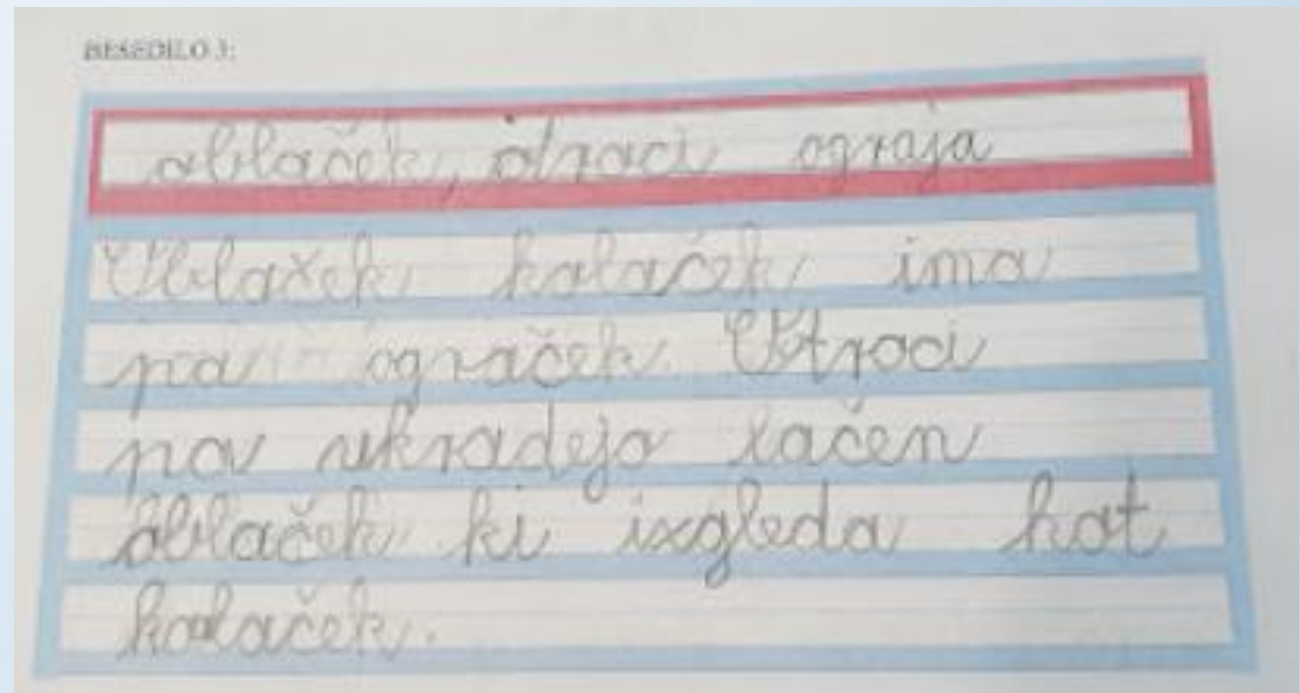 BESEDILO 3:
oblaček, otroci ograja
Oblaček kolaček ima
pa ograček. Otroci
pa ukradejo lačen
oblaček ki izgleda kot
kolaček.